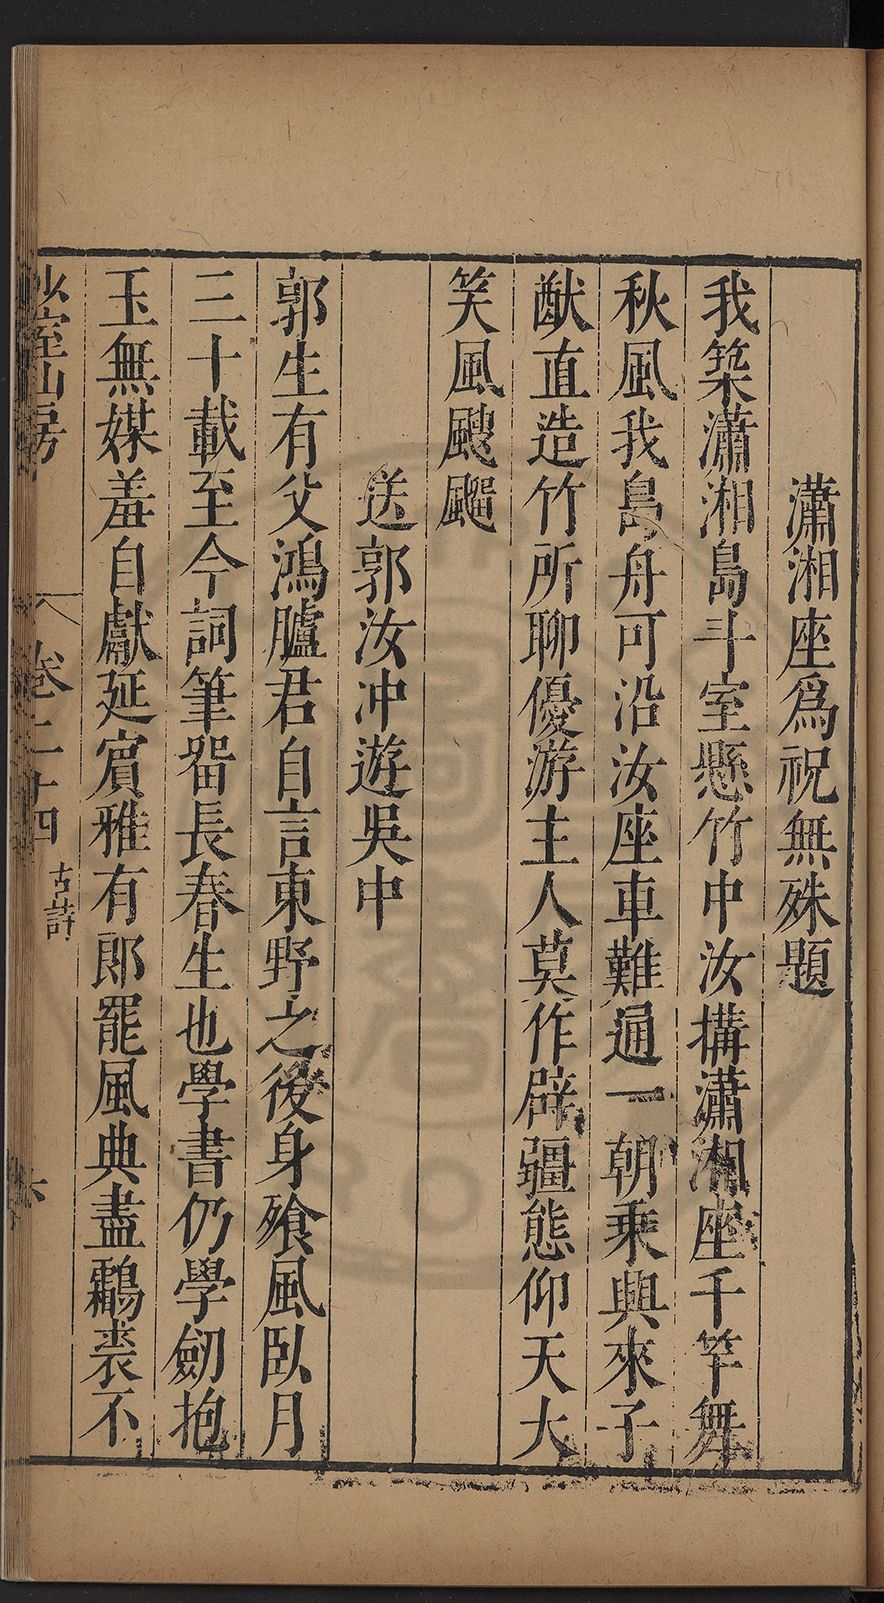 瀟湘座爲祝無殊題
我築瀟湘島斗室懸竹中汝搆瀟湘座千竿舞
秋風我島舟可沿汝座車難通一朝乘興來子
猷直造竹所聊優游主人莫作辟疆態仰天大
笑風颼飀
送郭汝冲遊吳中
郭生有父鴻臚君自言東野之後身飱風臥月
三十載至今詞筆畱長春生也學書仍學劒抱
玉無媒羞自獻延賔雅有郎罷風典盡鸘裘不
少室山房
卷二十四
古詩
六